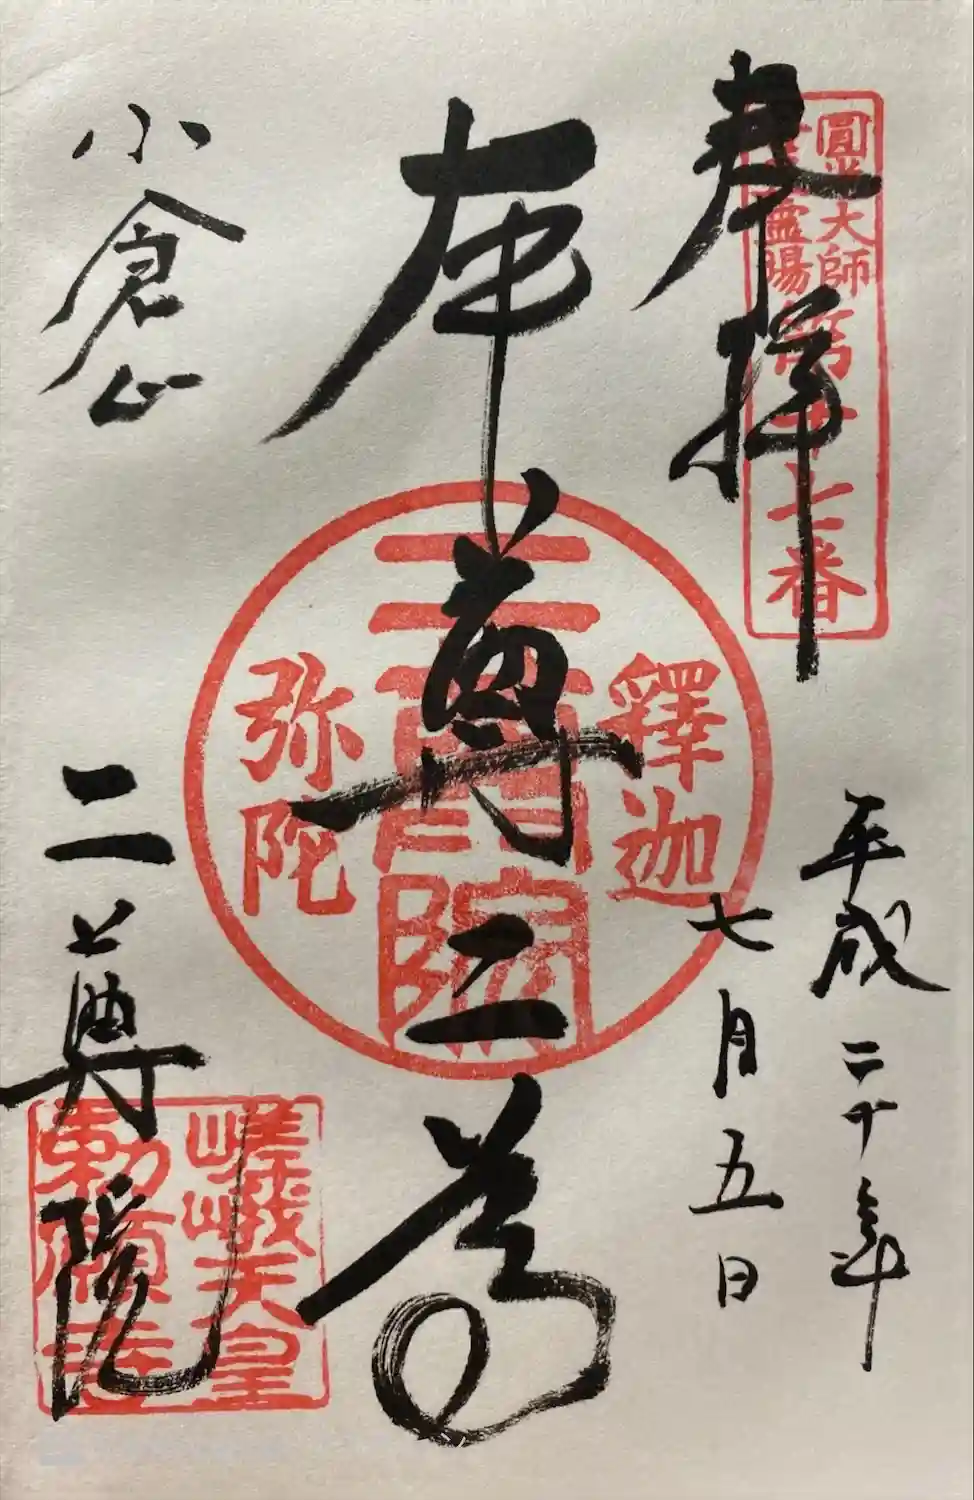 奉拝
圓光大師
靈場第十七番
平成二十年
七月五日
本尊二尊
釋迦
二尊院
弥陀
小倉山
二尊院
嵯峨天皇
勅願寺